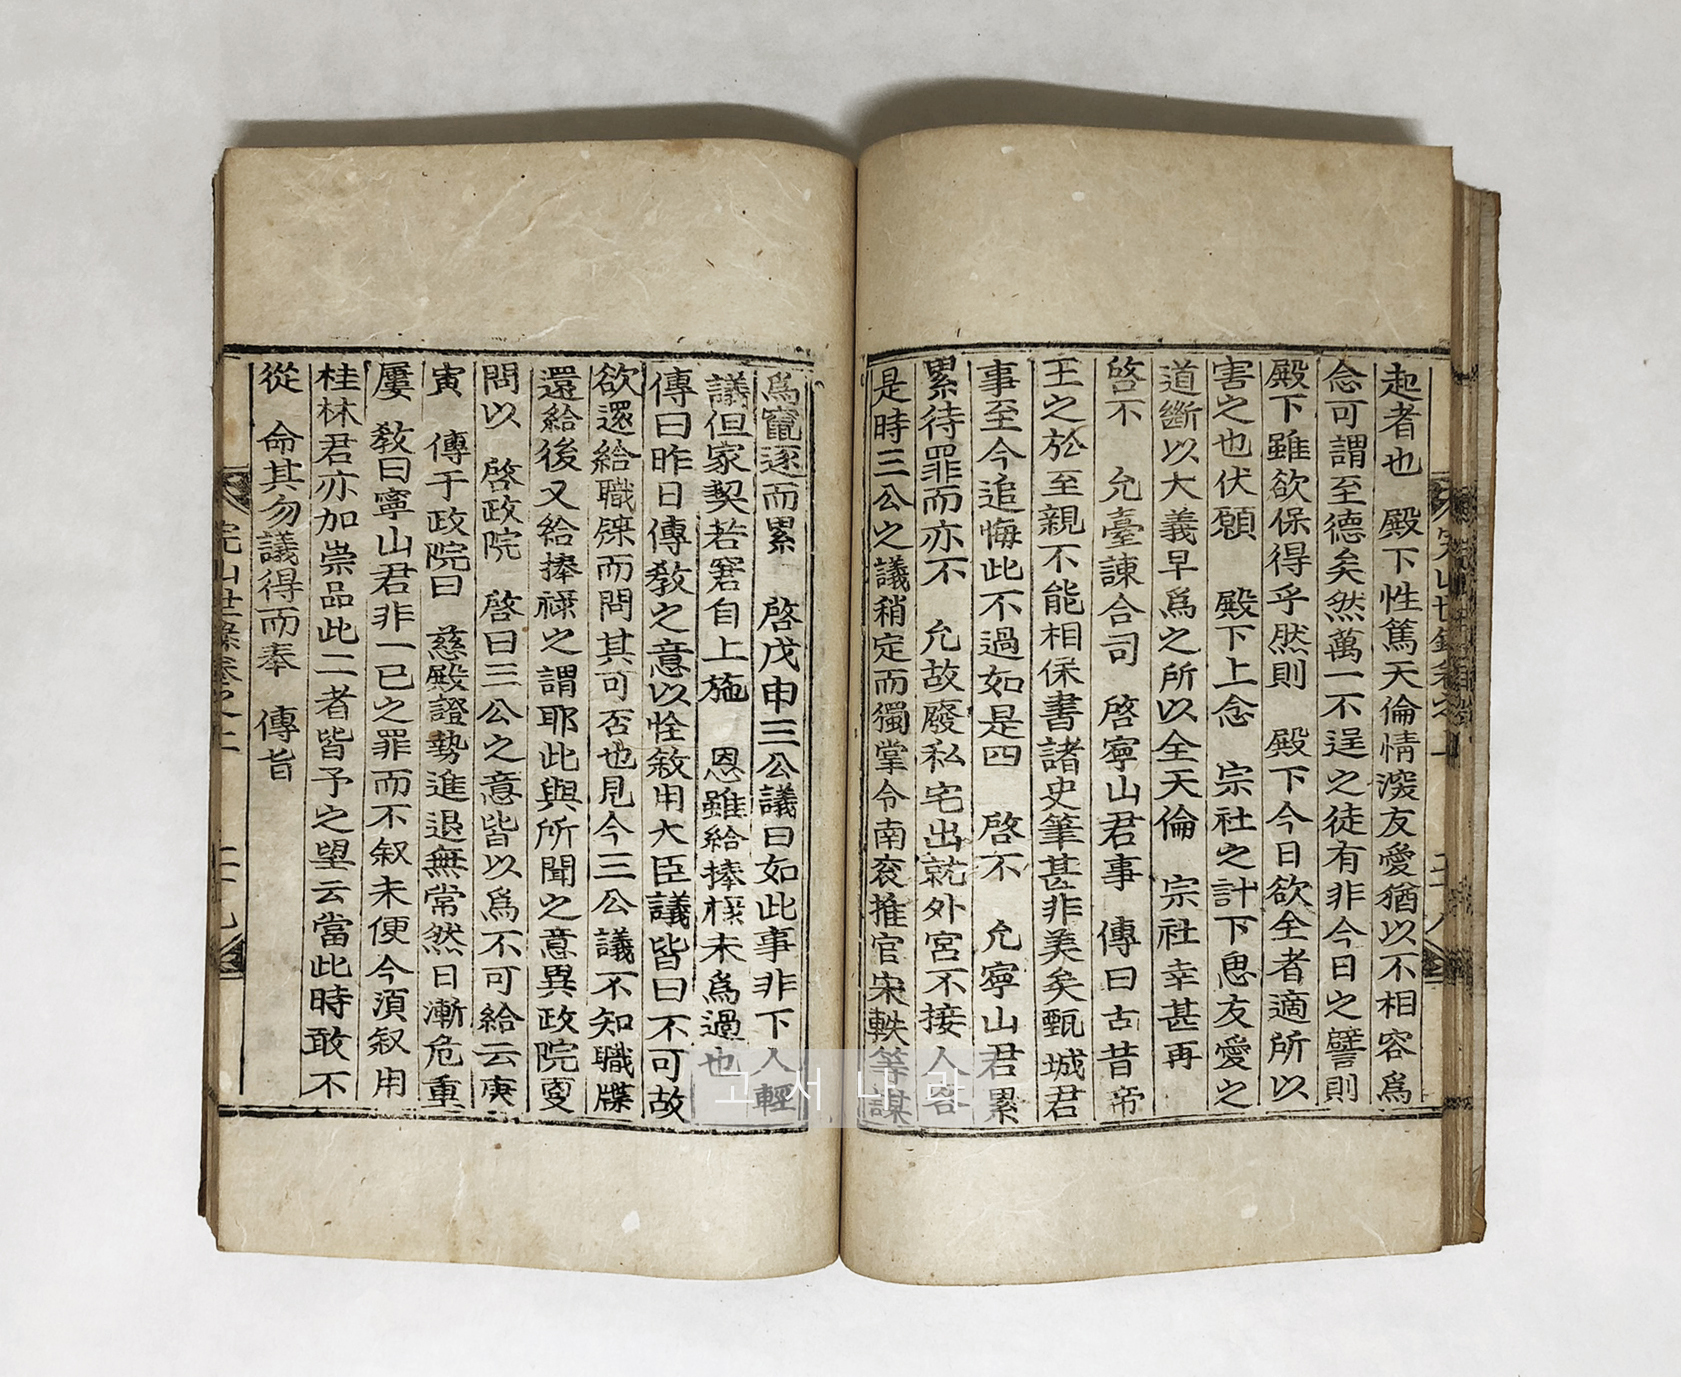 起者也　殿下性篤天倫情深友愛猶以不相容爲
念可謂至德矣然萬一不逞之徒有非今日之譬則
殿下雖欲保得乎然則　殿下今日欲全者適所以
害之也伏願　殿下上念　宗社之計下思友愛之
道斷以大義早爲之所以全天倫　宗社幸甚再
啓不　允臺諫合司　啓寧山君事　傳曰古昔帝
王之於至親不能相保書諸史筆甚非美矣甄城君
事至今追悔此不過如是四　啓不　允寧山君累
累待罪而亦不　允故廢私宅出就外宮不接人客
是時三公之議稍定而獨掌令南衮推官宋軼等謀
爲竄逐而累　啓戊申三公議曰如此事非下人輕
議但家契若窘自上施　恩雖給捧祿未爲過也
傳曰昨日傳敎之意以恠敘用大臣議皆曰不可故
欲還給職牒而問其可否也見今三公議不知職牒
還給後又給捧祿之謂耶此與所聞之意異政院更
問以　啓政院　啓曰三公之意皆以爲不可給云庚
寅　傳于政院曰　慈殿證勢進退無常然日漸危重
屢　敎曰寧山君非一已之罪而不叙未便今須叙用
桂林君亦加崇品此二者皆予之望云當此時敢不
從　命其勿議得而奉　傳旨
完山世錄卷之二
고서나라